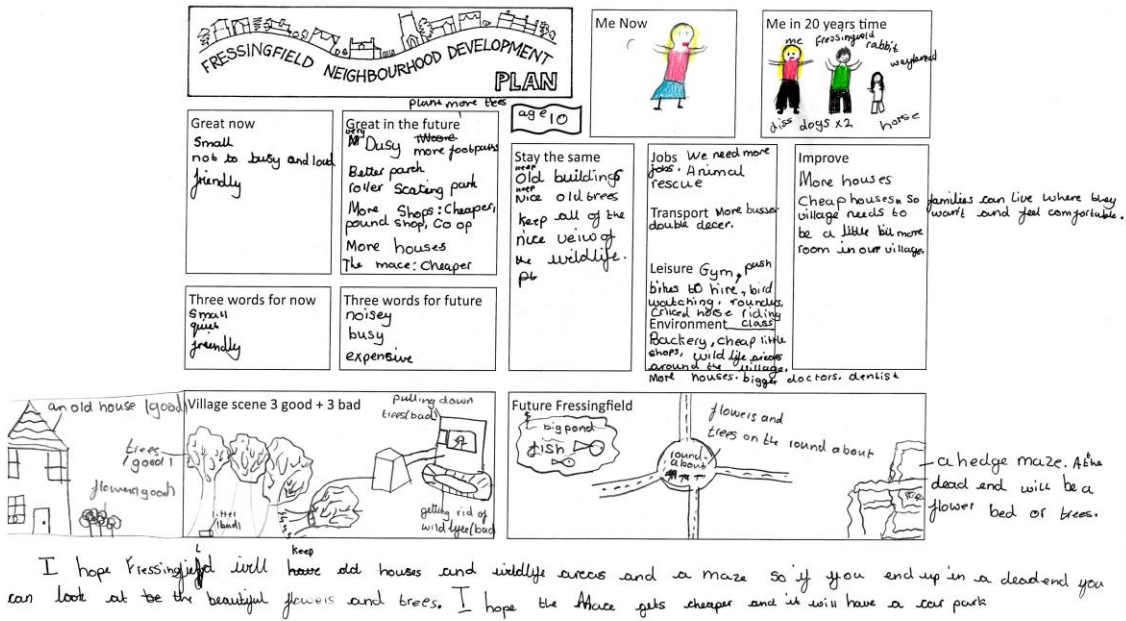 FRESSINGFIELD NEIGHBOURHOOD DEVELOPMENT
PLAN
Me Now
Me in 20 years time
me Fressingfield rabbit
diss dogs x2 horse
age 10
plant more trees
Great now
Small
not to busy and loud
friendly
Great in the future
very
Busy
more footpaths
Better parch
roller Scating park
More Shops: Cheaper,
pound shop, Co op
More houses
The mace: Cheaper
Stay the same
keep
Old buildings
keep
Nice old trees
keep all of the
nice veiws of
the wildlife.
Jobs We need more
jobs. Animal
rescue
Transport More busses
double decer.
Leisure Gym, push
bikes to hire, bird
watching, rounders,
criced horse riding
Environment class
Backery, cheap little
shops, wild life areas
around the village.
More houses. bigger doctors. dentist
Improve
More houses
Cheap houses so families can live where they
village needs to wan't and feel comfortable.
be a little bit more
room in our village.
Three words for now
Small
quiet
friendly
Three words for future
noisey
busy
expensive
Village scene 3 good + 3 bad
an old house (good)
trees
(good)
flowers(good)
litter
(bad)
pulling down
trees(bad)
getting rid of
wild lyfe(bad)
Future Fressingfield
big pond
fish
round-
about
flowers and
trees on the round about
a hedge maze. At the
dead end will be a
flower bed or trees.
I hope Fressingfield will keep old houses and wildlife areas and a maze so if you end up in a dead end you
can look at the beautiful flowers and trees. I hope the Mace gets cheaper and it will have a car park